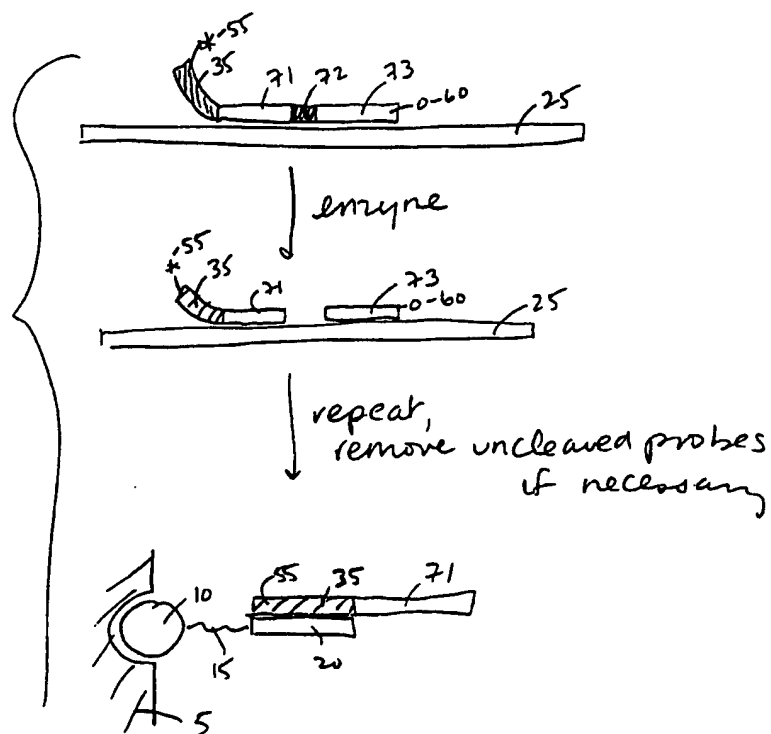 *-55
35
71
72
73
0-60
25
enzyme
*-55
35
71
73
0-60
25
repeat,
remove uncleaved probes
if necessary
55
35
71
10
15
20
5